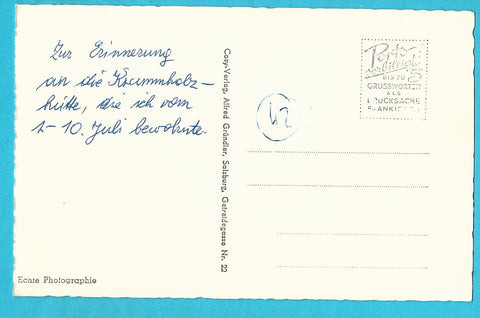 Zur Erinnerung
an die Krummholz-
hütte, die ich vom
1-10. Juli bewohnte.
Echte Photographie
Cosy-Verlag, Alfred Gründler, Salzburg, Getreidegasse Nr. 22
42
Porto
verbilligt
5
BIS ZU
GRUSSWORTEN
ALS
DRUCKSACHE
FRANKIEREN